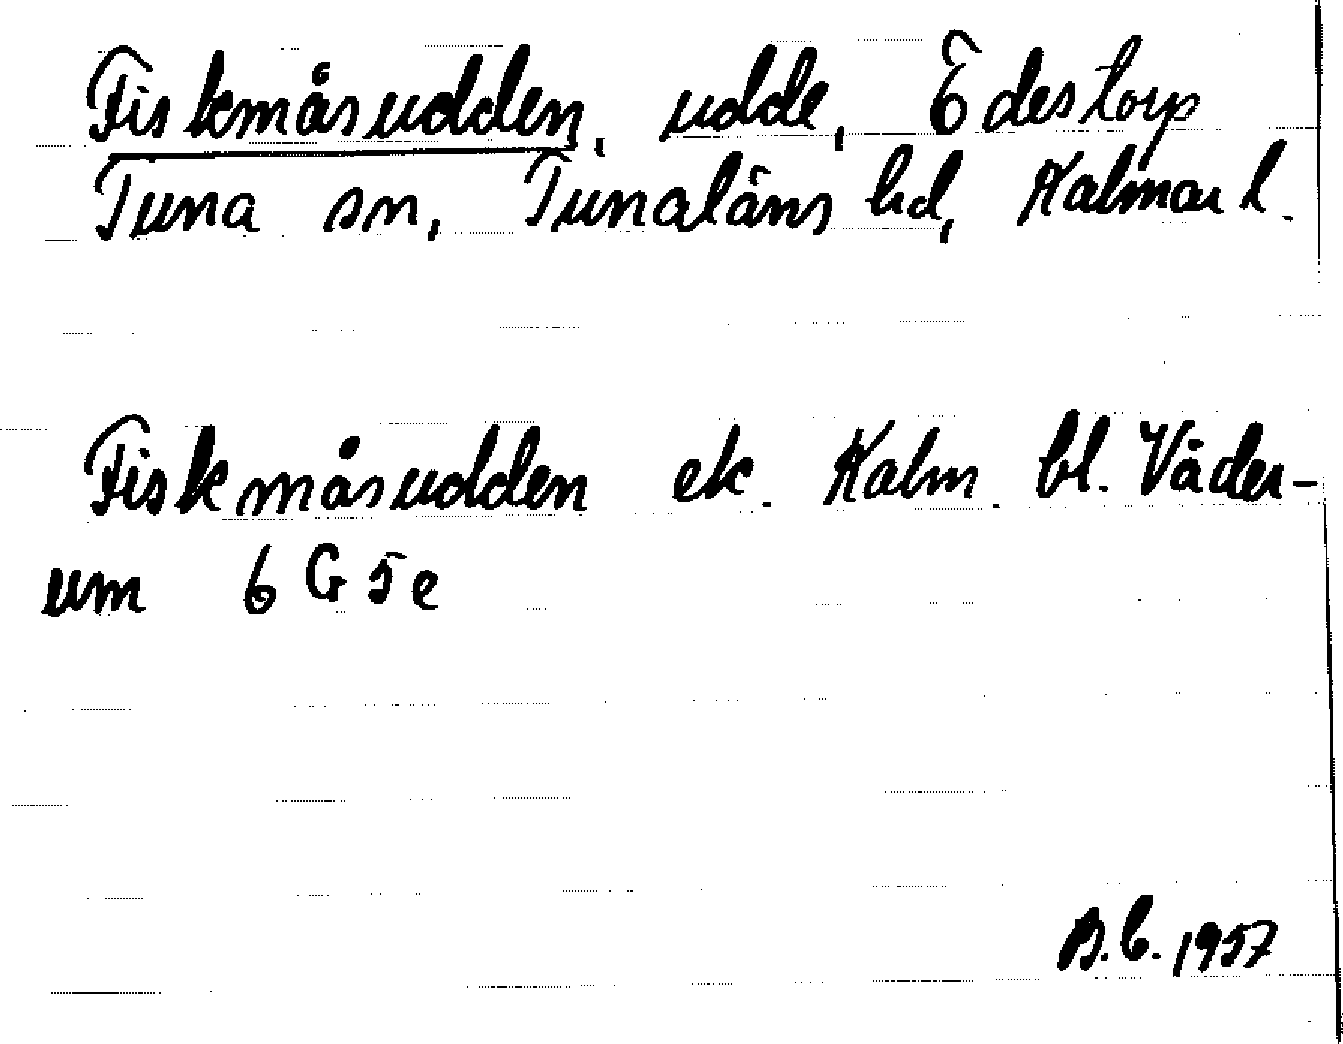 Fiskmåsudden, udde, Edestorp
Tuna sn, Tunaläns hd, Kalmar l.
Fiskmåsudden ek. Kalm. bl. Väder-
um 6 G 5 e
B.C. 1957